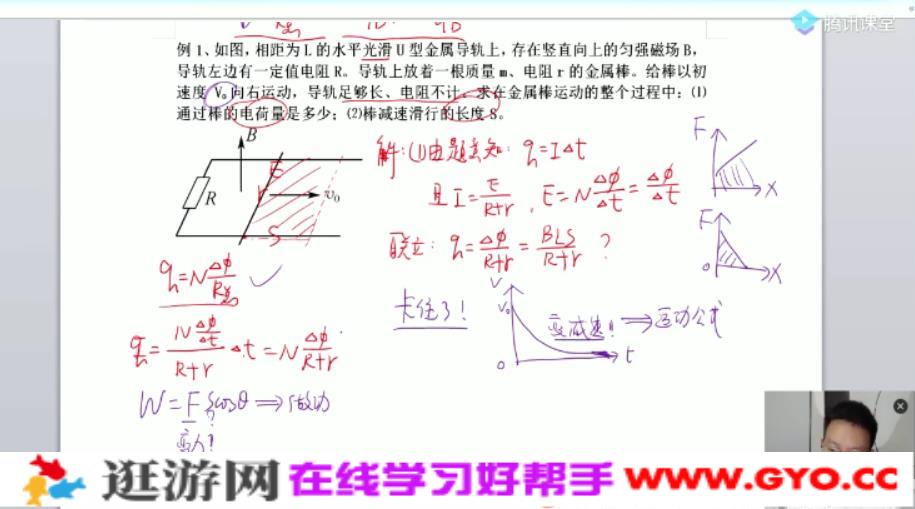 腾讯课堂
例 1、如图,相距为 L 的水平光滑 U 型金属导轨上,存在竖直向上的匀强磁场 B,
导轨左边有一定值电阻 R。导轨上放着一根质量 m、电阻 r 的金属棒。给棒以初
速度 V₀向右运动,导轨足够长、电阻不计。求在金属棒运动的整个过程中:(1)
通过棒的电荷量是多少;(2)棒减速滑行的长度 S。
B
R
E
r
v₀
S
解:(1)由题意知:q=IΔt
且 I=E/(R+r),E=NΔφ/Δt=Δφ/Δt
联立:q=Δφ/(R+r)=BLS/(R+r) ?
F
X
F
0
X
q=NΔφ/R总 ✓
卡住了!
V
V₀
变减速!!⇒运动公式
0
t
q=(NΔφ/Δt)/(R+r)·Δt=NΔφ/(R+r)
W=F·Scosθ⇒做功
?
变力?
逛游网 在线学习好帮手 www.GYO.cc